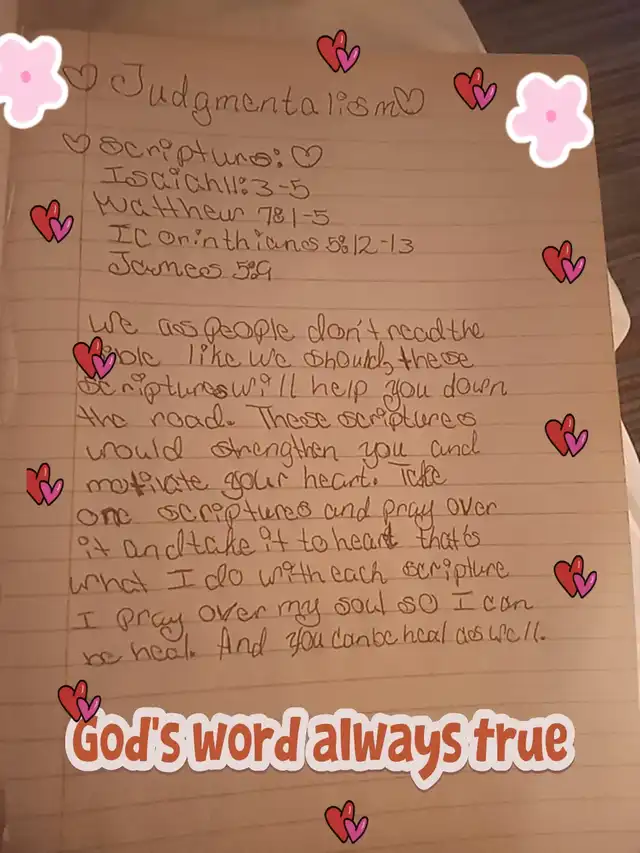 ♡ Judgmentalism ♡
♡ Scripture: ♡
Isaiah 11:3-5
Matthew 7:1-5
I Corinthians 5:12-13
James 5:9
We as people don't read the
ible like we should, these
scriptures will help you down
the road. These scriptures
would strengthen you and
motivate your heart. Take
one scriptures and pray over
it and take it to heart that's
what I do with each scripture
I pray over my soul so I can
be heal. And you can be heal as well.
God's word always true